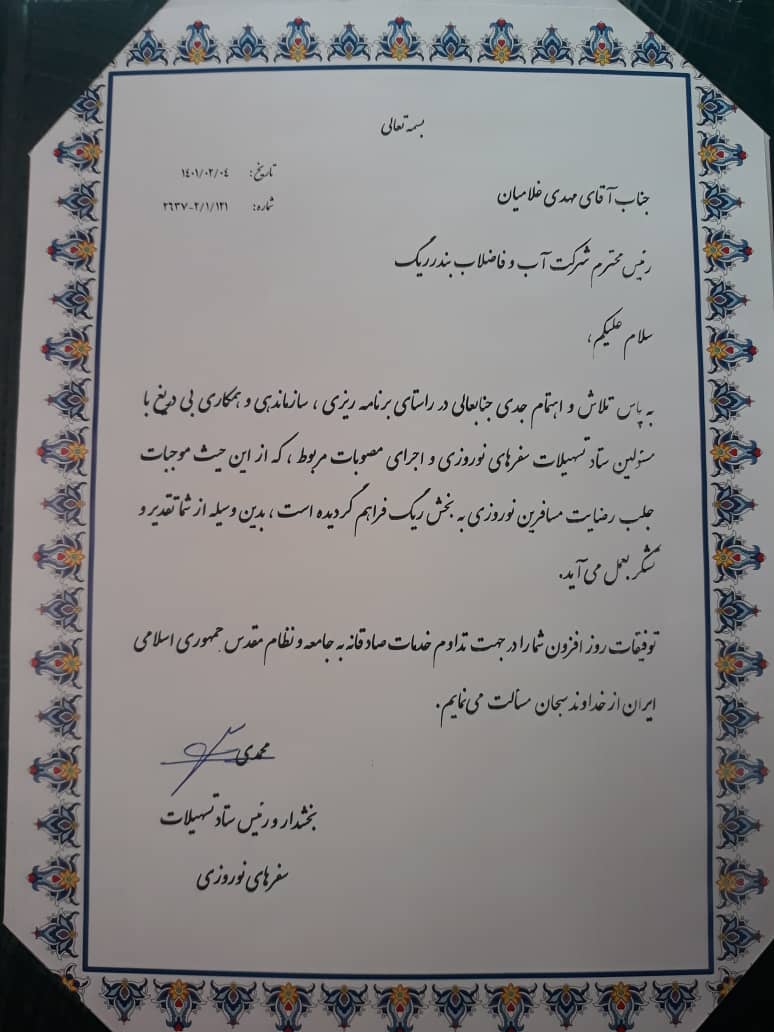 بسمه تعالی
تاریخ: ۱۴۰۱/۰۲/۰۴
شماره: ۲۶۳۷-۲/۱/۱۲۱
جناب آقای مهدی غلامیان
رئیس محترم شرکت آب و فاضلاب بندرریگ
سلام علیکم،
به پاس تلاش و اهتمام جدی جنابعالی در راستای برنامه ریزی، سازماندهی و همکاری بی دریغ با
مسئولین ستاد تسهیلات سفرهای نوروزی و اجرای مصوبات مربوط، که از این حیث موجبات
جلب رضایت مسافرین نوروزی به بخش ریگ فراهم گردیده است، بدین وسیله از شما تقدیر و
تشکر بعمل می آید.
توفیقات روز افزون شما را در جهت تداوم خدمات صادقانه به جامعه و نظام مقدس جمهوری اسلامی
ایران از خداوند سبحان مسألت می نمایم.
محمدی
بخشدار و رئیس ستاد تسهیلات
سفرهای نوروزی